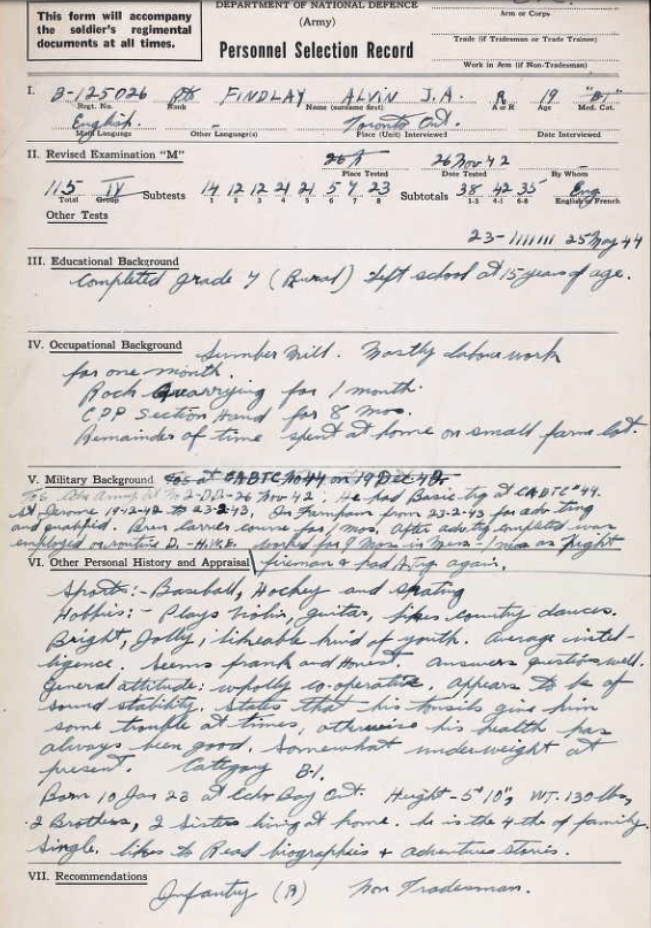 This form will accompany
the soldier's regimental
documents at all times.
DEPARTMENT OF NATIONAL DEFENCE
(Army)
Personnel Selection Record
Arm or Corps
Trade (if Tradesman or Trade Trainee)
Work in Arm (if Non-Tradesman)
I. B-125026 Pte FINDLAY ALVIN J.A. R 19 "B1"
Regt. No. Rank Name (surname first) A or R Age Med. Cat.
English. Toronto Ont.
Main Language Other Language(s) Place (Unit) Interviewed Date Interviewed
II. Revised Examination "M" 26 Nov 42
Place Tested Date Tested By Whom
115 IV Subtests 14 12 12 21 21 5 7 23 Subtotals 38 42 35 Eng
Total Group 1 2 3 4 5 6 7 8 1-3 4-5 6-8 English or French
Other Tests
23-1111111 25 May 44
III. Educational Background
Completed grade 7 (Rural) Left school at 15 years of age.
IV. Occupational Background Lumber Mill. Mostly labour work
for one month.
Rock Quarrying for 1 month.
C.P.P Section Hand for 8 mos.
Remainder of time spent at home on small farm lot.
V. Military Background at CABTC No 44 on 19 Dec 42
26 Nov 42. He had Basic trg at CABTC #44.
St. Jerome 19-12-42 to 23-2-43. from 23-2-43 for adv trg
and qualified. Bren carrier course for 1 mos. After adv trg completed was
employed on routine D. - H.W.E. worked for 9 mos in Mess - 1 mos as night
VI. Other Personal History and Appraisal fireman & had A. trg again.
Sports:- Baseball, Hockey and skating
Hobbies:- Plays violin, guitar, likes country dances.
Bright, Jolly, likeable kind of youth. Average intel-
ligence. Seems frank and honest. Answers questions well.
General attitude: wholly co-operative, appears to be of
sound stability. States that his tonsils give him
some trouble at times, otherwise his health has
always been good. Somewhat underweight at
present. Category B1.
Born 10 Jan 23 at Echo Bay Ont. Height - 5' 10", WT. 130 lbs,
2 Brothers, 2 Sisters living at home. he is the 4 the of family.
Single. likes to Read biographies & adventure stories.
VII. Recommendations
Infantry (R) Non Tradesman.